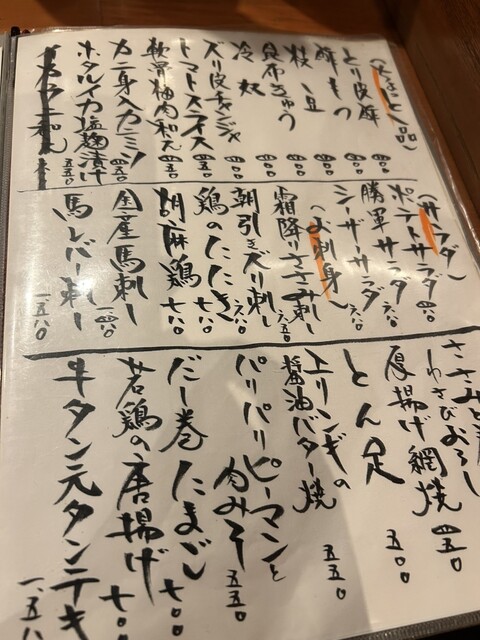 とり皮酢 四〇〇
酢もつ 四〇〇
枝豆 四〇〇
昆布きゅう 四〇〇
冷奴 四〇〇
ズリ皮チャンジャ 四五〇
トマトスライス 四五〇
軟骨梅肉和え 四五〇
カニ身入カニミソ 四五〇
ホタルイカ塩麹漬け 五五〇
(サラダ)
ポテトサラダ 四八〇
勝軍サラダ 六八〇
シーザーサラダ 六八〇
(お刺身)
霜降りささみ刺し 六五〇
朝引きズリ刺し 六八〇
鶏のたたき 七八〇
胡麻鶏 七八〇
国産馬刺し
馬レバー刺し 一、五八〇
わさびおろし
厚揚げ網焼 四五〇
とん足 五〇〇
エリンギの
醤油バター焼 五五〇
パリパリピーマンと
肉みそ 五五〇
だし巻たまご 七〇〇
若鶏の唐揚げ 七〇〇
牛タン元タンテキ